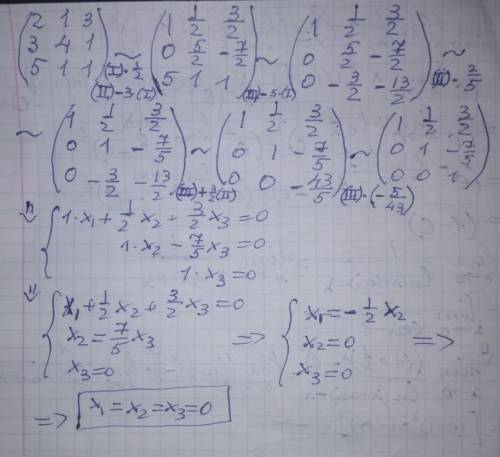 (2 1 3; 3 4 1; 5 1 1) (I)·1/2 (II)-3·(I) ~ (1 1/2 3/2; 0 5/2 -7/2; 5 1 1) (III)-5·(I) ~ (1 1/2 3/2; 0 5/2 -7/2; 0 -3/2 -13/2) (II)·2/5 ~
~ (1 1/2 3/2; 0 1 -7/5; 0 -3/2 -13/2) (III)+3/2(II) ~ (1 1/2 3/2; 0 1 -7/5; 0 0 -43/5) (III)·(-5/43) ~ (1 1/2 3/2; 0 1 -7/5; 0 0 1)
⇓
{ 1·x₁+1/2x₂+3/2x₃=0
1·x₂-7/5x₃=0
1·x₃=0
⇓
{ x₁+1/2x₂+3/2x₃=0
x₂=7/5x₃
x₃=0
=> { x₁=-1/2x₂
x₂=0
x₃=0 =>
=> x₁=x₂=x₃=0